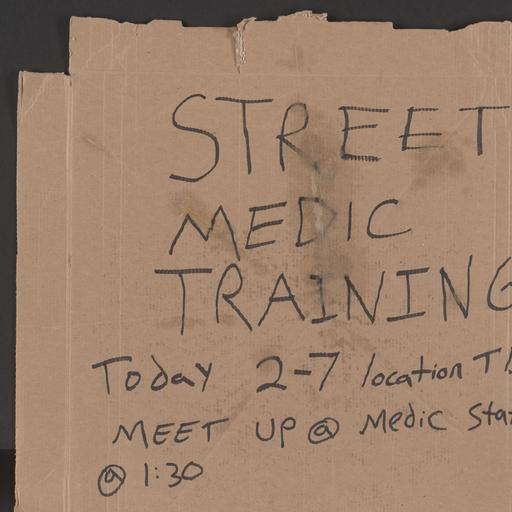 STREET
MEDIC
TRAINING
Today 2-7 location
MEET UP @ Medic
@ 1:30